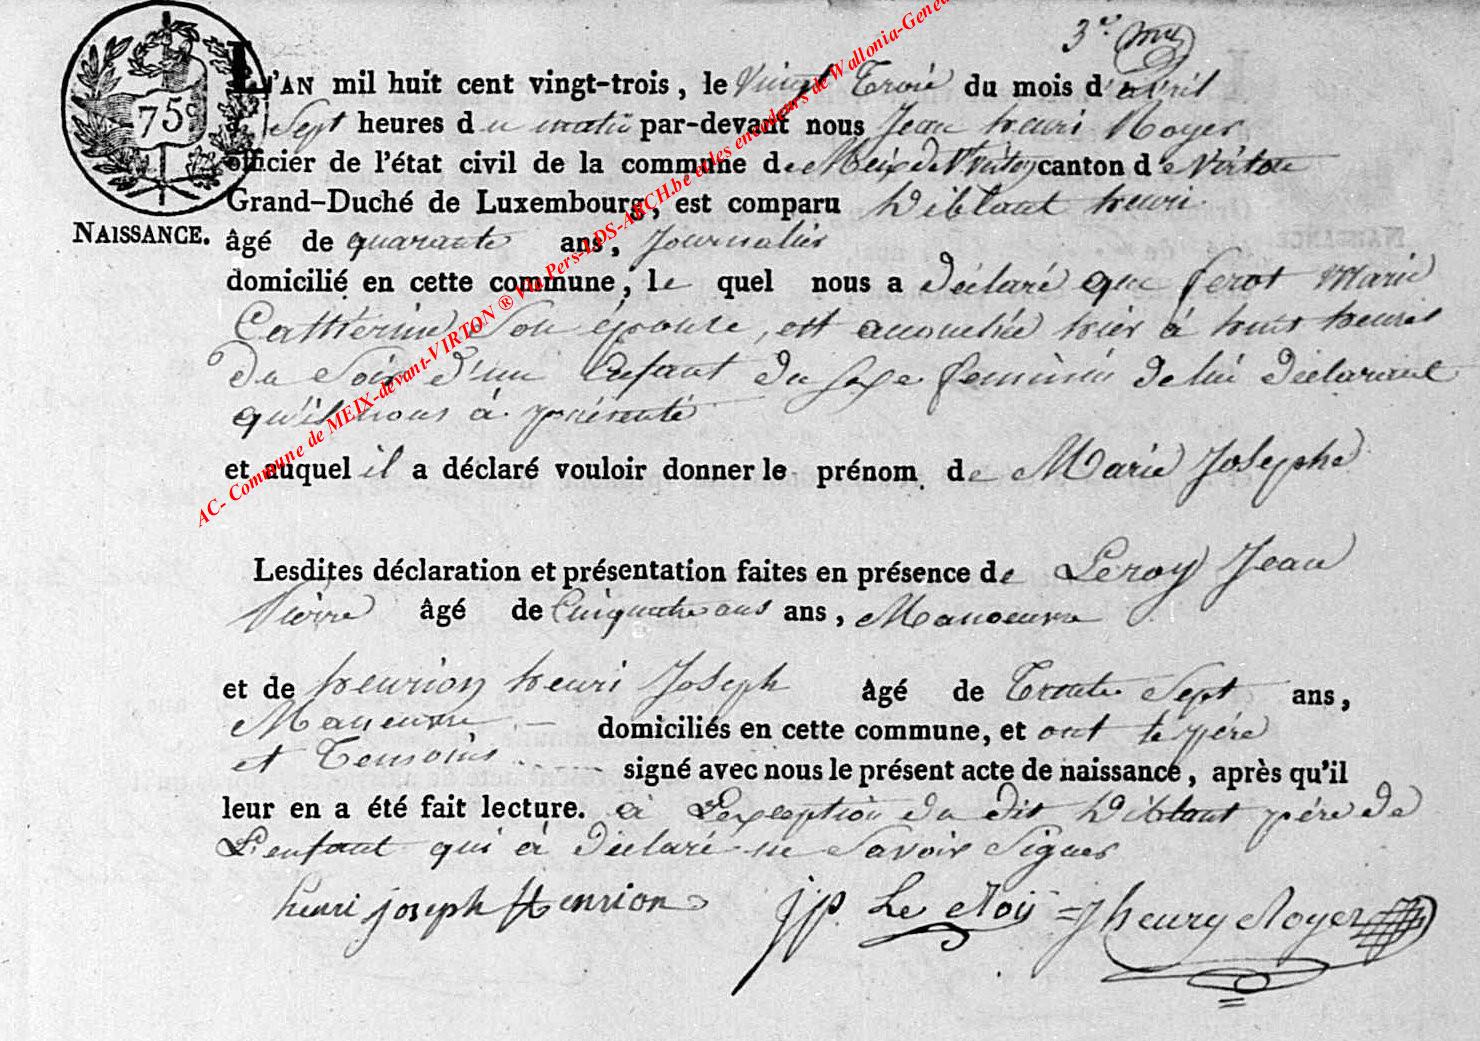 3e
L'AN mil huit cent vingt-trois, le Vingt Trois du mois d'avril
à Sept heures du matin par-devant nous Jean henri Noyer
officier de l'état civil de la commune de Meix dt Virton canton de Virton
Grand-Duché de Luxembourg, est comparu Wiblaut henri
75c
NAISSANCE.
âgé de quarante ans, Journalier
domicilié en cette commune, le quel nous a déclaré que ferot Marie
Cathérine Son épouse, est accouchée hier à huit heures
du Soir d'un Enfant du sexe féminin de lui déclarant
qu'il nous à présenté
et auquel il a déclaré vouloir donner le prénom de Marie Josephe
Lesdites déclaration et présentation faites en présence de Leroy Jean
Pierre âgé de Cinquante ans ans, Manoeuvre
et de henrion henri Joseph âgé de Trente Sept ans,
Maneuvre domiciliés en cette commune, et ont le pére
et Temoins signé avec nous le présent acte de naissance, après qu'il
leur en a été fait lecture. à L'exception du dit Wiblaut pére de
L'enfant qui à déclaré ne Savoir Signer
henri joseph Henrion jp. Le Roy Jhenry Noyer
AC- Commune de MEIX-devant-VIRTON ® Via Pers-LDS-ARCH.be et les encodeurs de Wallonia-Genea